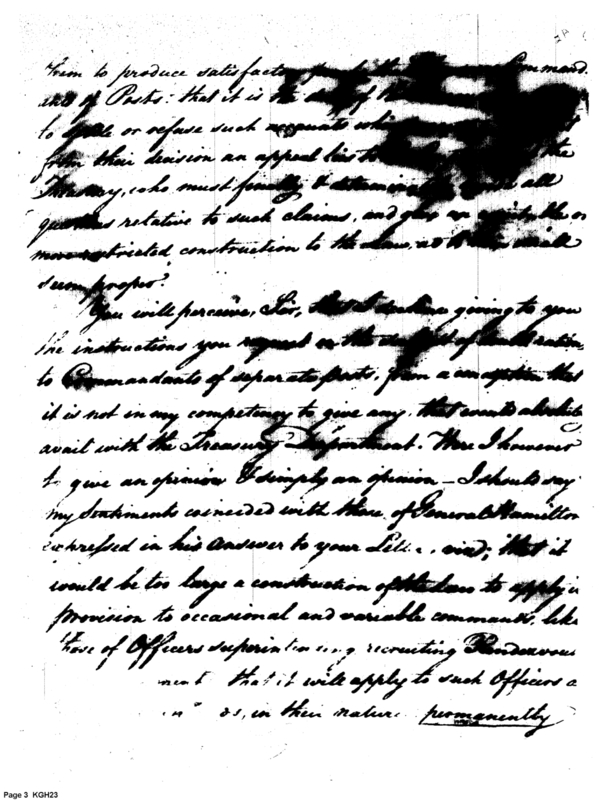 them to produce satisfactory Command
ants of Posts: that it is the duty of the
to settle or refuse such accounts
from their decision an appeal lies to the
Treasury, who must finally determine all
questions relative to such claims, and give an equitable or
more restricted construction to the Law, as to them shall
seem proper.
You will perceive, Sir, that I decline giving to you
the instructions you request on the subject of double rations
to Commandants of separate posts, from a conception that
it is not in my competency to give any, that would absolutely
avail with the Treasury Department. Were I however
to give an opinion & simply an opinion – I should say
my Sentiments coincided with those of General Hamilton
expressed in his answer to your Letter, viz; that it
would be too large a construction of the law to apply
provision to occasional and variable commands, like
those of Officers superintending recruiting Rendezvous
that it will apply to such Officers
in their nature permanently
Page 3 KGH23